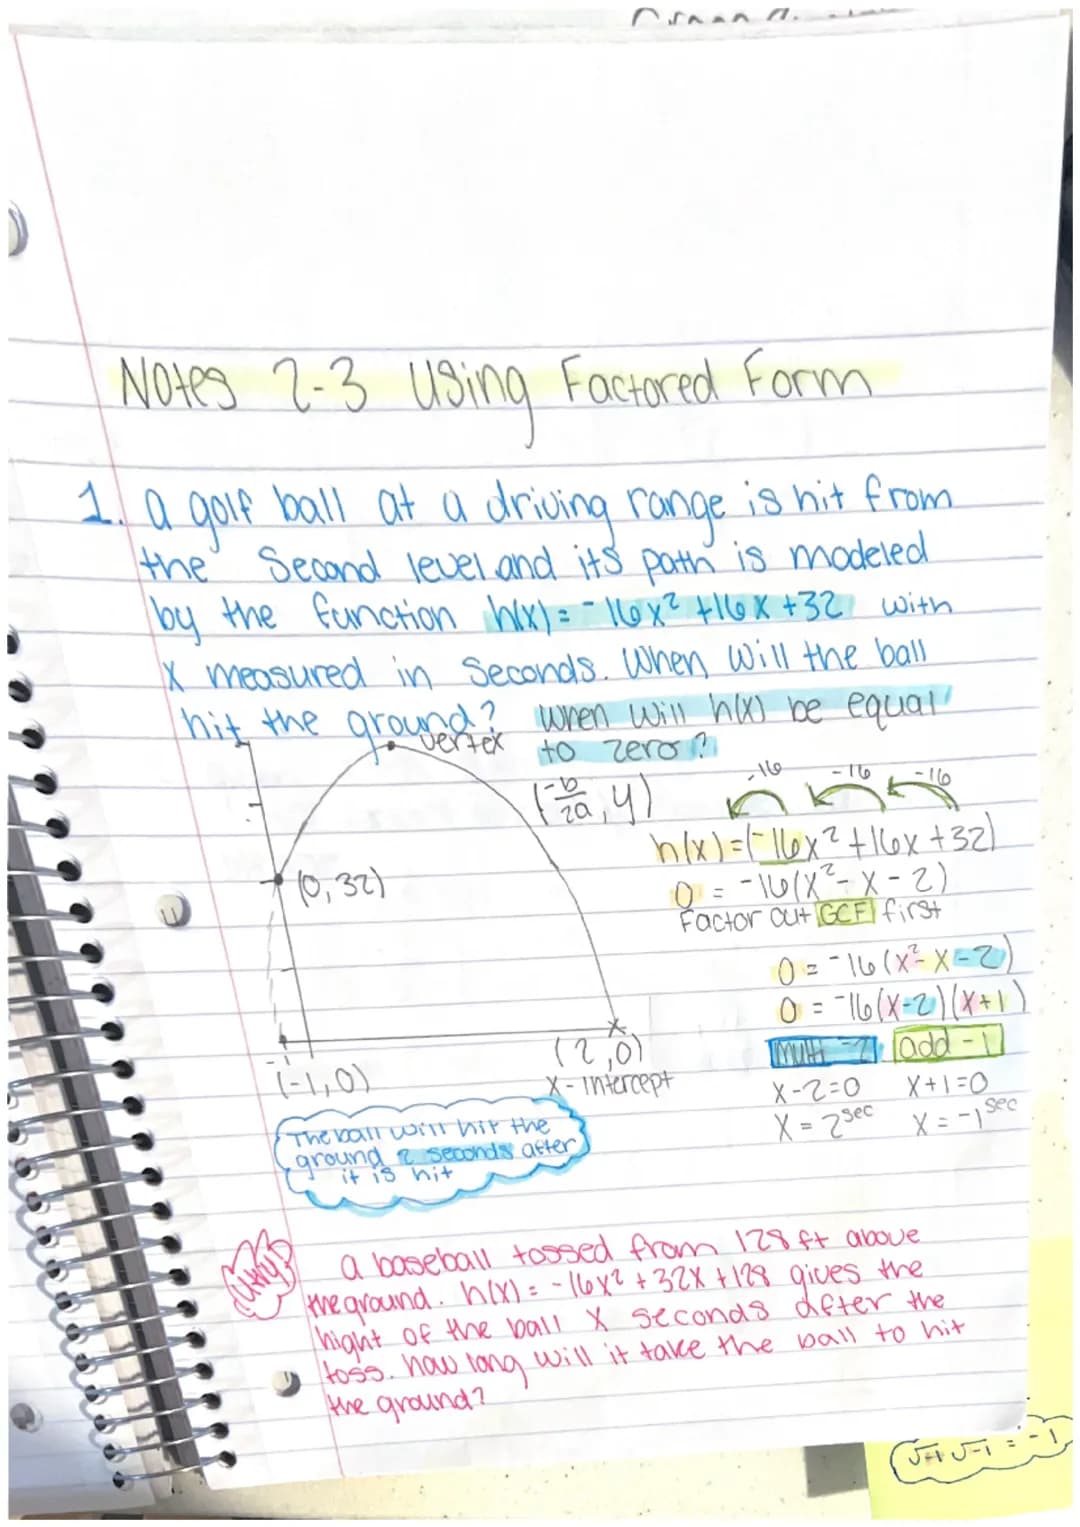 Notes 2-3 Using Factored Form
1. a golf ball at a driving range is hit from
the Second level and its path is modeled
by the function h(x) = -16x² +16x +32 with
x measured in seconds. When will the ball
hit the ground? When will h(x) be equal
to zero?
vertex
(-b/2a, y)
-16 -16 -16
h(x)=(-16x²+16x+32)
(0, 32)
0 = -16(x²-x-2)
Factor out GCF first
0 = -16(x²-x-2)
0 = -16(x-2)(x+1)
multi -2 add -1
-1
(-1,0)
(2,0)
x-intercept
x-2=0 x+1=0
x = 2 sec x = -1 sec
The ball will hit the
ground 2 seconds after
it is hit
a baseball tossed from 128 ft above
the ground. h(x) = -16x² + 32x + 128 gives the
hight of the ball x seconds after the
toss. how long will it take the ball to hit
the ground?
√-1 √-1 = -1